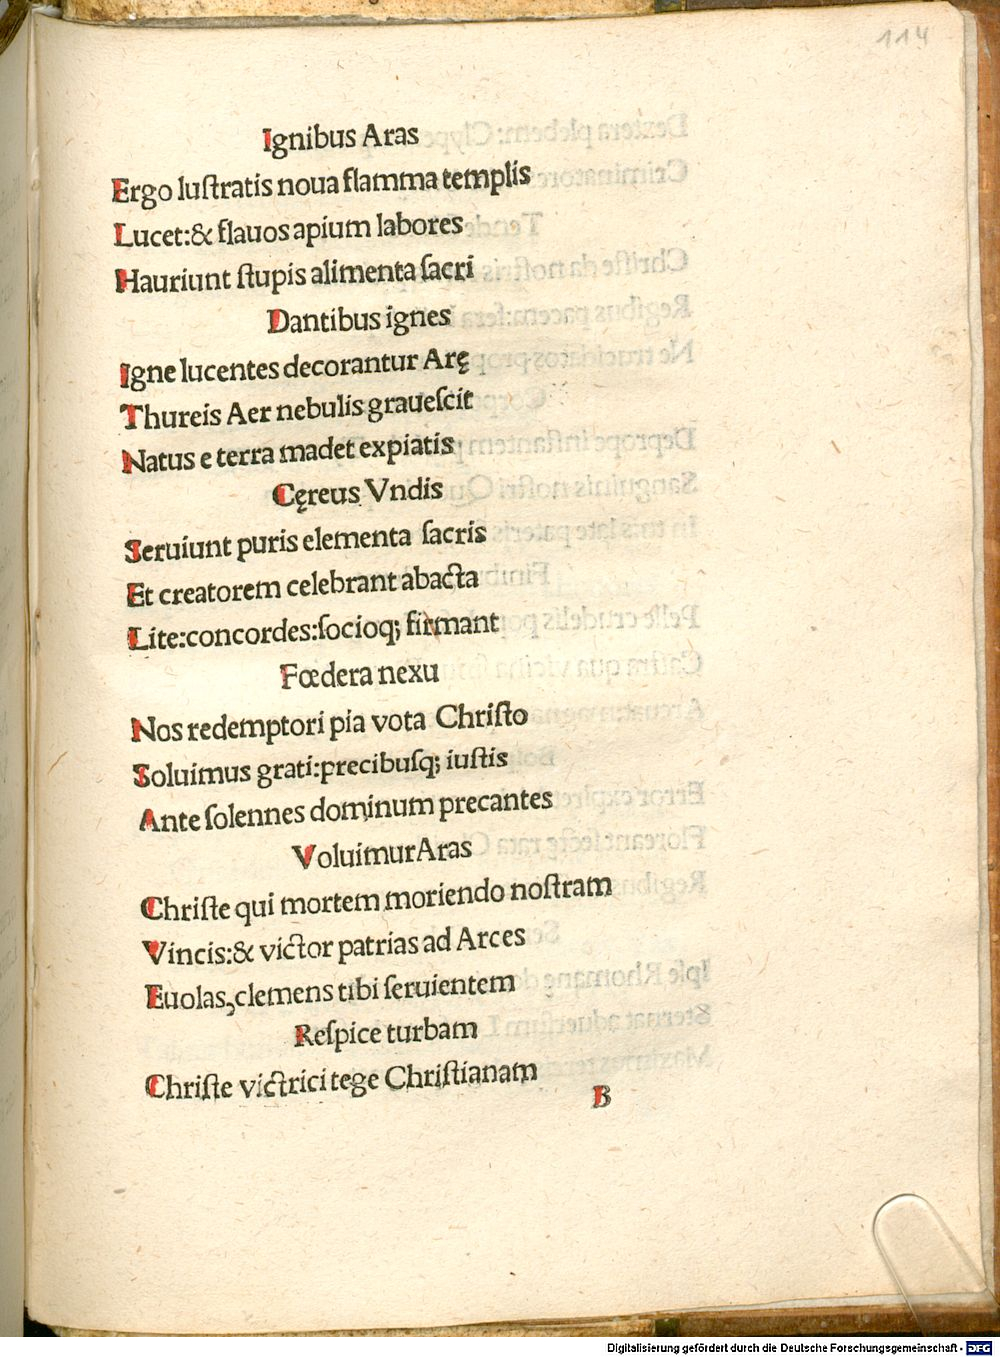 114
Ignibus Aras
Ergo luſtratis noua flamma templis
Lucet:& flauos apium labores
Hauriunt ſtupis alimenta ſacri
Dantibus ignes
Igne lucentes decorantur Arę
Thureis Aer nebulis graueſcit
Natus e terra madet expiatis
Cęreus Vndis
Seruiunt puris elementa ſacris
Et creatorem celebrant abacta
Lite:concordes:ſocioq; firmant
Fœdera nexu
Nos redemptori pia vota Chriſto
Soluimus grati:precibuſq; iuſtis
Ante ſolennes dominum precantes
Voluimur Aras
Chriſte qui mortem moriendo noſtram
Vincis:& victor patrias ad Arces
Euolas,clemens tibi ſeruientem
Reſpice turbam
Chriſte victrici tege Chriſtianam
B
Digitalisierung gefördert durch die Deutsche Forschungsgemeinschaft - DFG